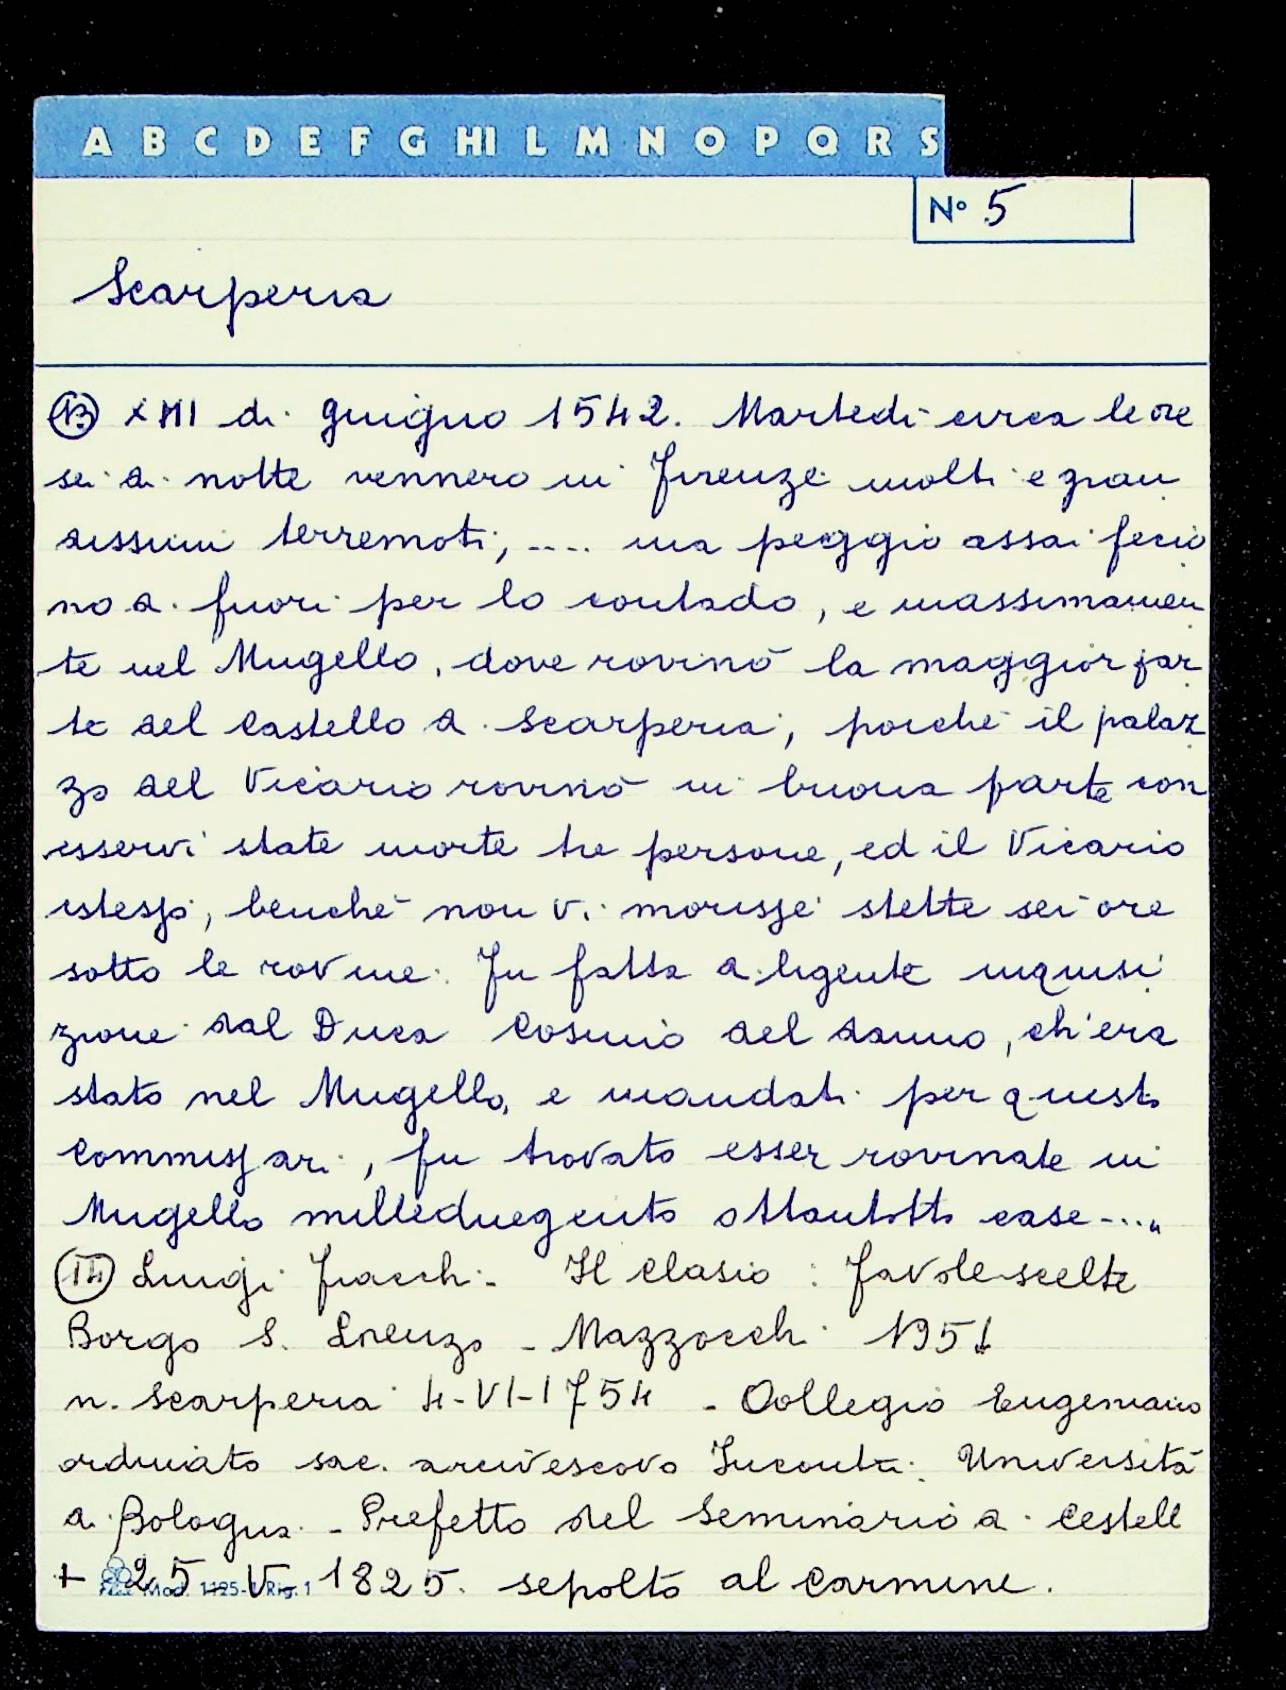 A B C D E F G HI L M N O P Q R S
N° 5
Scarperia
13 XIII di giugno 1542. Martedì circa le ore
sei di notte vennero in Firenze molti e gran
dissimi terremoti, .... ma peggio assai fecio
no di fuori per lo contado, e massimamen
te nel Mugello, dove rovinò la maggior par
te del Castello di Scarperia, poiché il palaz
zo del Vicario rovinò in buona parte con
esservi state morte tre persone, ed il Vicario
istesso, benché non vi morisse stette sei ore
sotto le rovine. Fu fatta diligente inquisi
zione dal Duca Cosimo del danno, ch'era
stato nel Mugello, e mandati per questo
Commissari, fu trovato esser rovinate in
Mugello milleduegento ottantotto case ...."
14 Luigi Fiacchi - Il Clasio : Favole scelte
Borgo S. Lorenzo - Mazzocchi 1951
n. Scarperia 4-VI-1754 - Collegio Eugeniano
ordinato sac. arcivescovo Incontri. Università
di Bologna - Prefetto del Seminario di Cestell
+ 25 - V - 1825. sepolto al Carmine.
Mod. 1125-1 Rig. 1